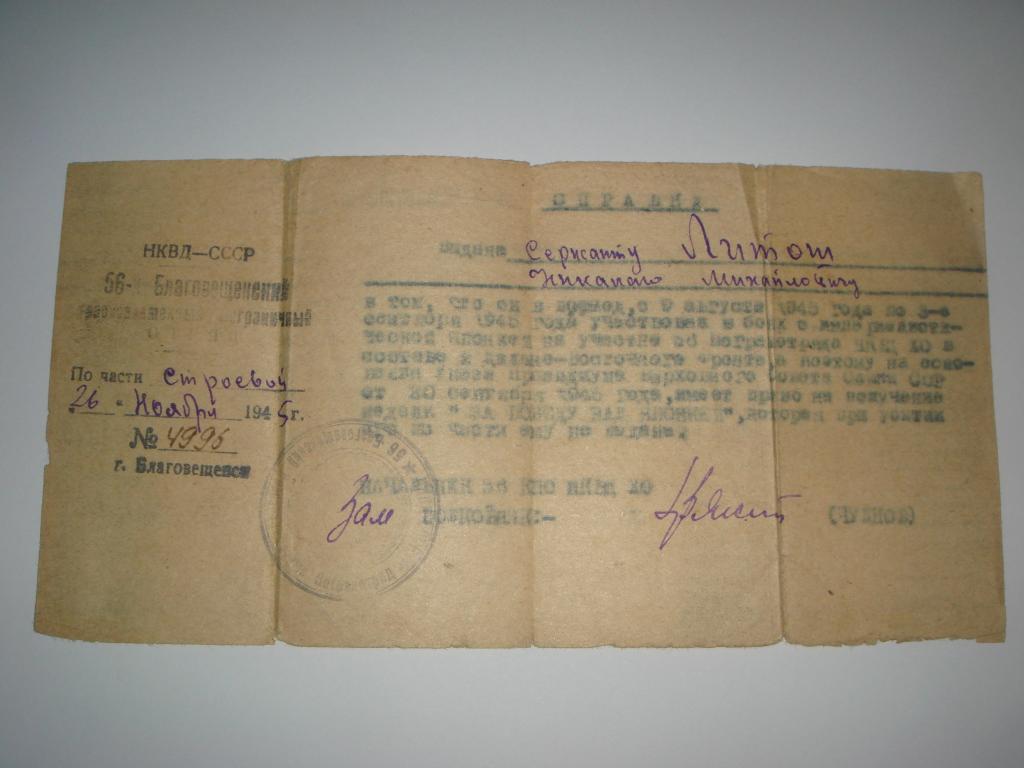 НКВД—СССР
56-й Благовещенский
пограничный
По части Строевой
26 " Ноября 1945 г.
№ 4996
г. Благовещенск
СПРАВКА
Выдана Сержанту Литош
Михайловичу
в том, что он в период, с 9 августа 1945 года по 3-е
сентября 1945 года участвовал в боях с империалисти-
ческой Японией за участие об погранотряда НКВД ХО в
составе 2 Дальне-Восточного фронта и поэтому на осно-
вании Указа Президиума Верховного Совета Союза ССР
от 30 сентября 1945 года, имеет право на получение
медали "ЗА ПОБЕДУ НАД ЯПОНИЕЙ", которая при убытии
его из части ему не выдана.
НАЧАЛЬНИК 56 НКВД ХО
Зам ПОЛКОВНИК:-